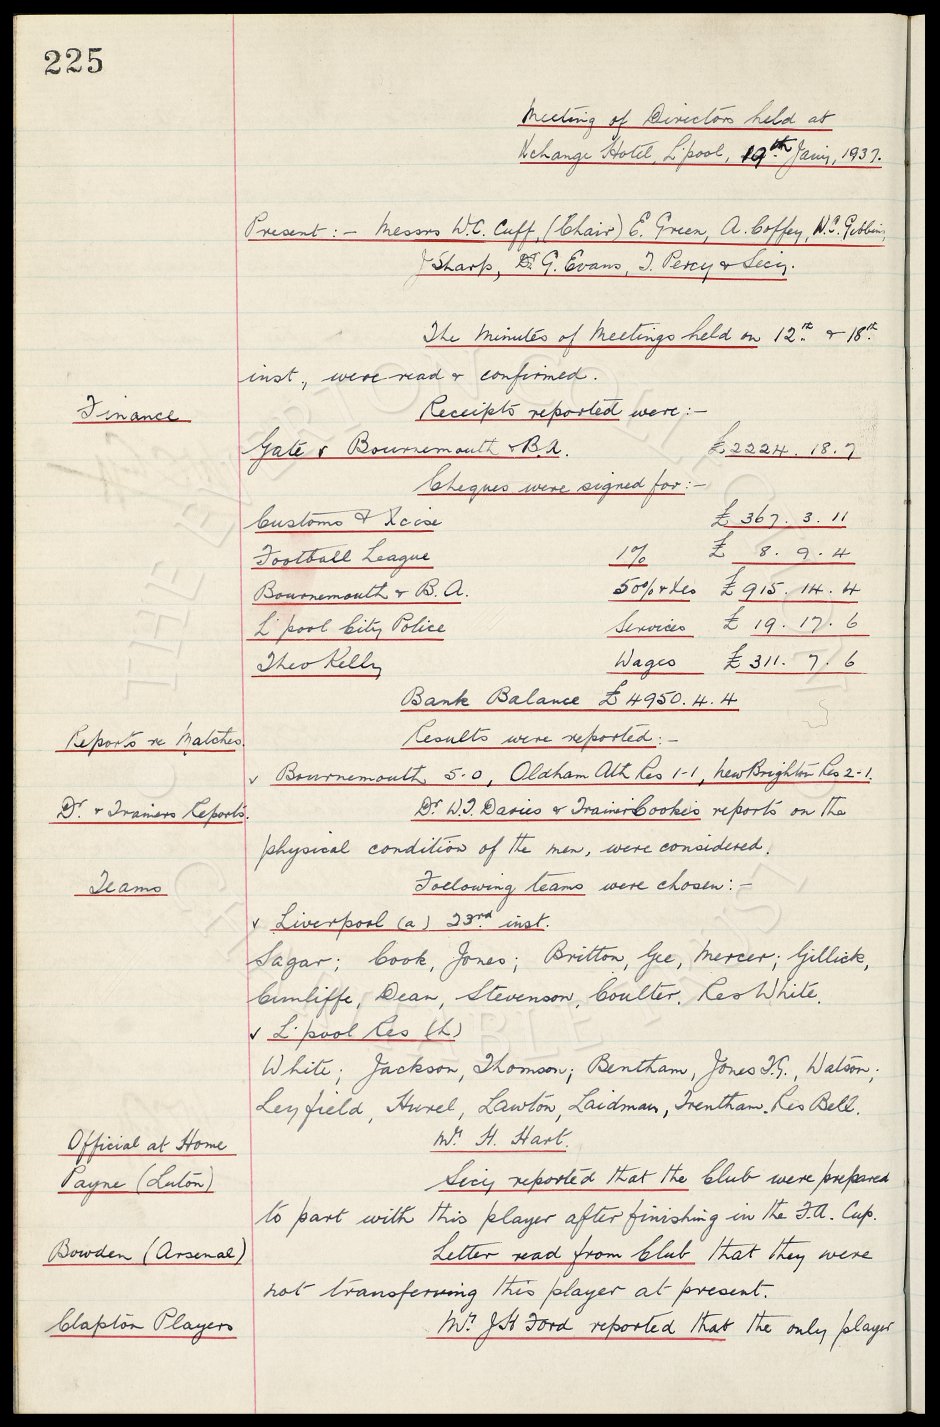 225
Meeting of Directors held at
Xchange Hotel, L'pool, 19th Jany, 1937.
Present :- Messrs W.C. Cuff, (Chair) E. Green, A. Coffey, W.C. Gibbins,
J Sharp, Dr. G. Evans, T. Percy & Secy.
The Minutes of Meetings held on 12th & 18th
inst., were read & confirmed.
Finance
Receipts reported were :-
Gate v Bournemouth & B.A. £2224. 18. 7
Cheques were signed for :-
Customs & Xcise £ 367. 3. 11
Football League 1% £ 8. 9. 4
Bournemouth & B.A. 50% & Xes £ 915. 14. 4
L'pool City Police Services £ 19. 17. 6
Theo Kelly Wages £ 311. 7. 6
Bank Balance £4950. 4. 4
Reports re Matches.
Results were reported :-
v Bournemouth 5-0, Oldham Ath Res 1-1, New Brighton Res 2-1.
Dr. & Trainers Reports.
Dr W.T. Davies & Trainer Cooke's reports on the
physical condition of the men, were considered.
Teams
Following teams were chosen :-
v Liverpool (a) 23rd inst.
Sagar; Cook, Jones; Britton, Gee, Mercer; Gillick,
Cunliffe, Dean, Stevenson, Coulter. Res White.
v L'pool Res (h)
White; Jackson, Thomson; Bentham, Jones T.G., Watson;
Leyfield, Hurel, Lawton, Laidman, Trentham. Res Bell.
Official at Home
Mr. H. Hart.
Payne (Luton)
Secy reported that the Club were prepared
to part with this player after finishing in the F.A. Cup.
Bowden (Arsenal)
Letter read from Club that they were
not transferring this player at present.
Clapton Players
Mr. J H Ford reported that the only player